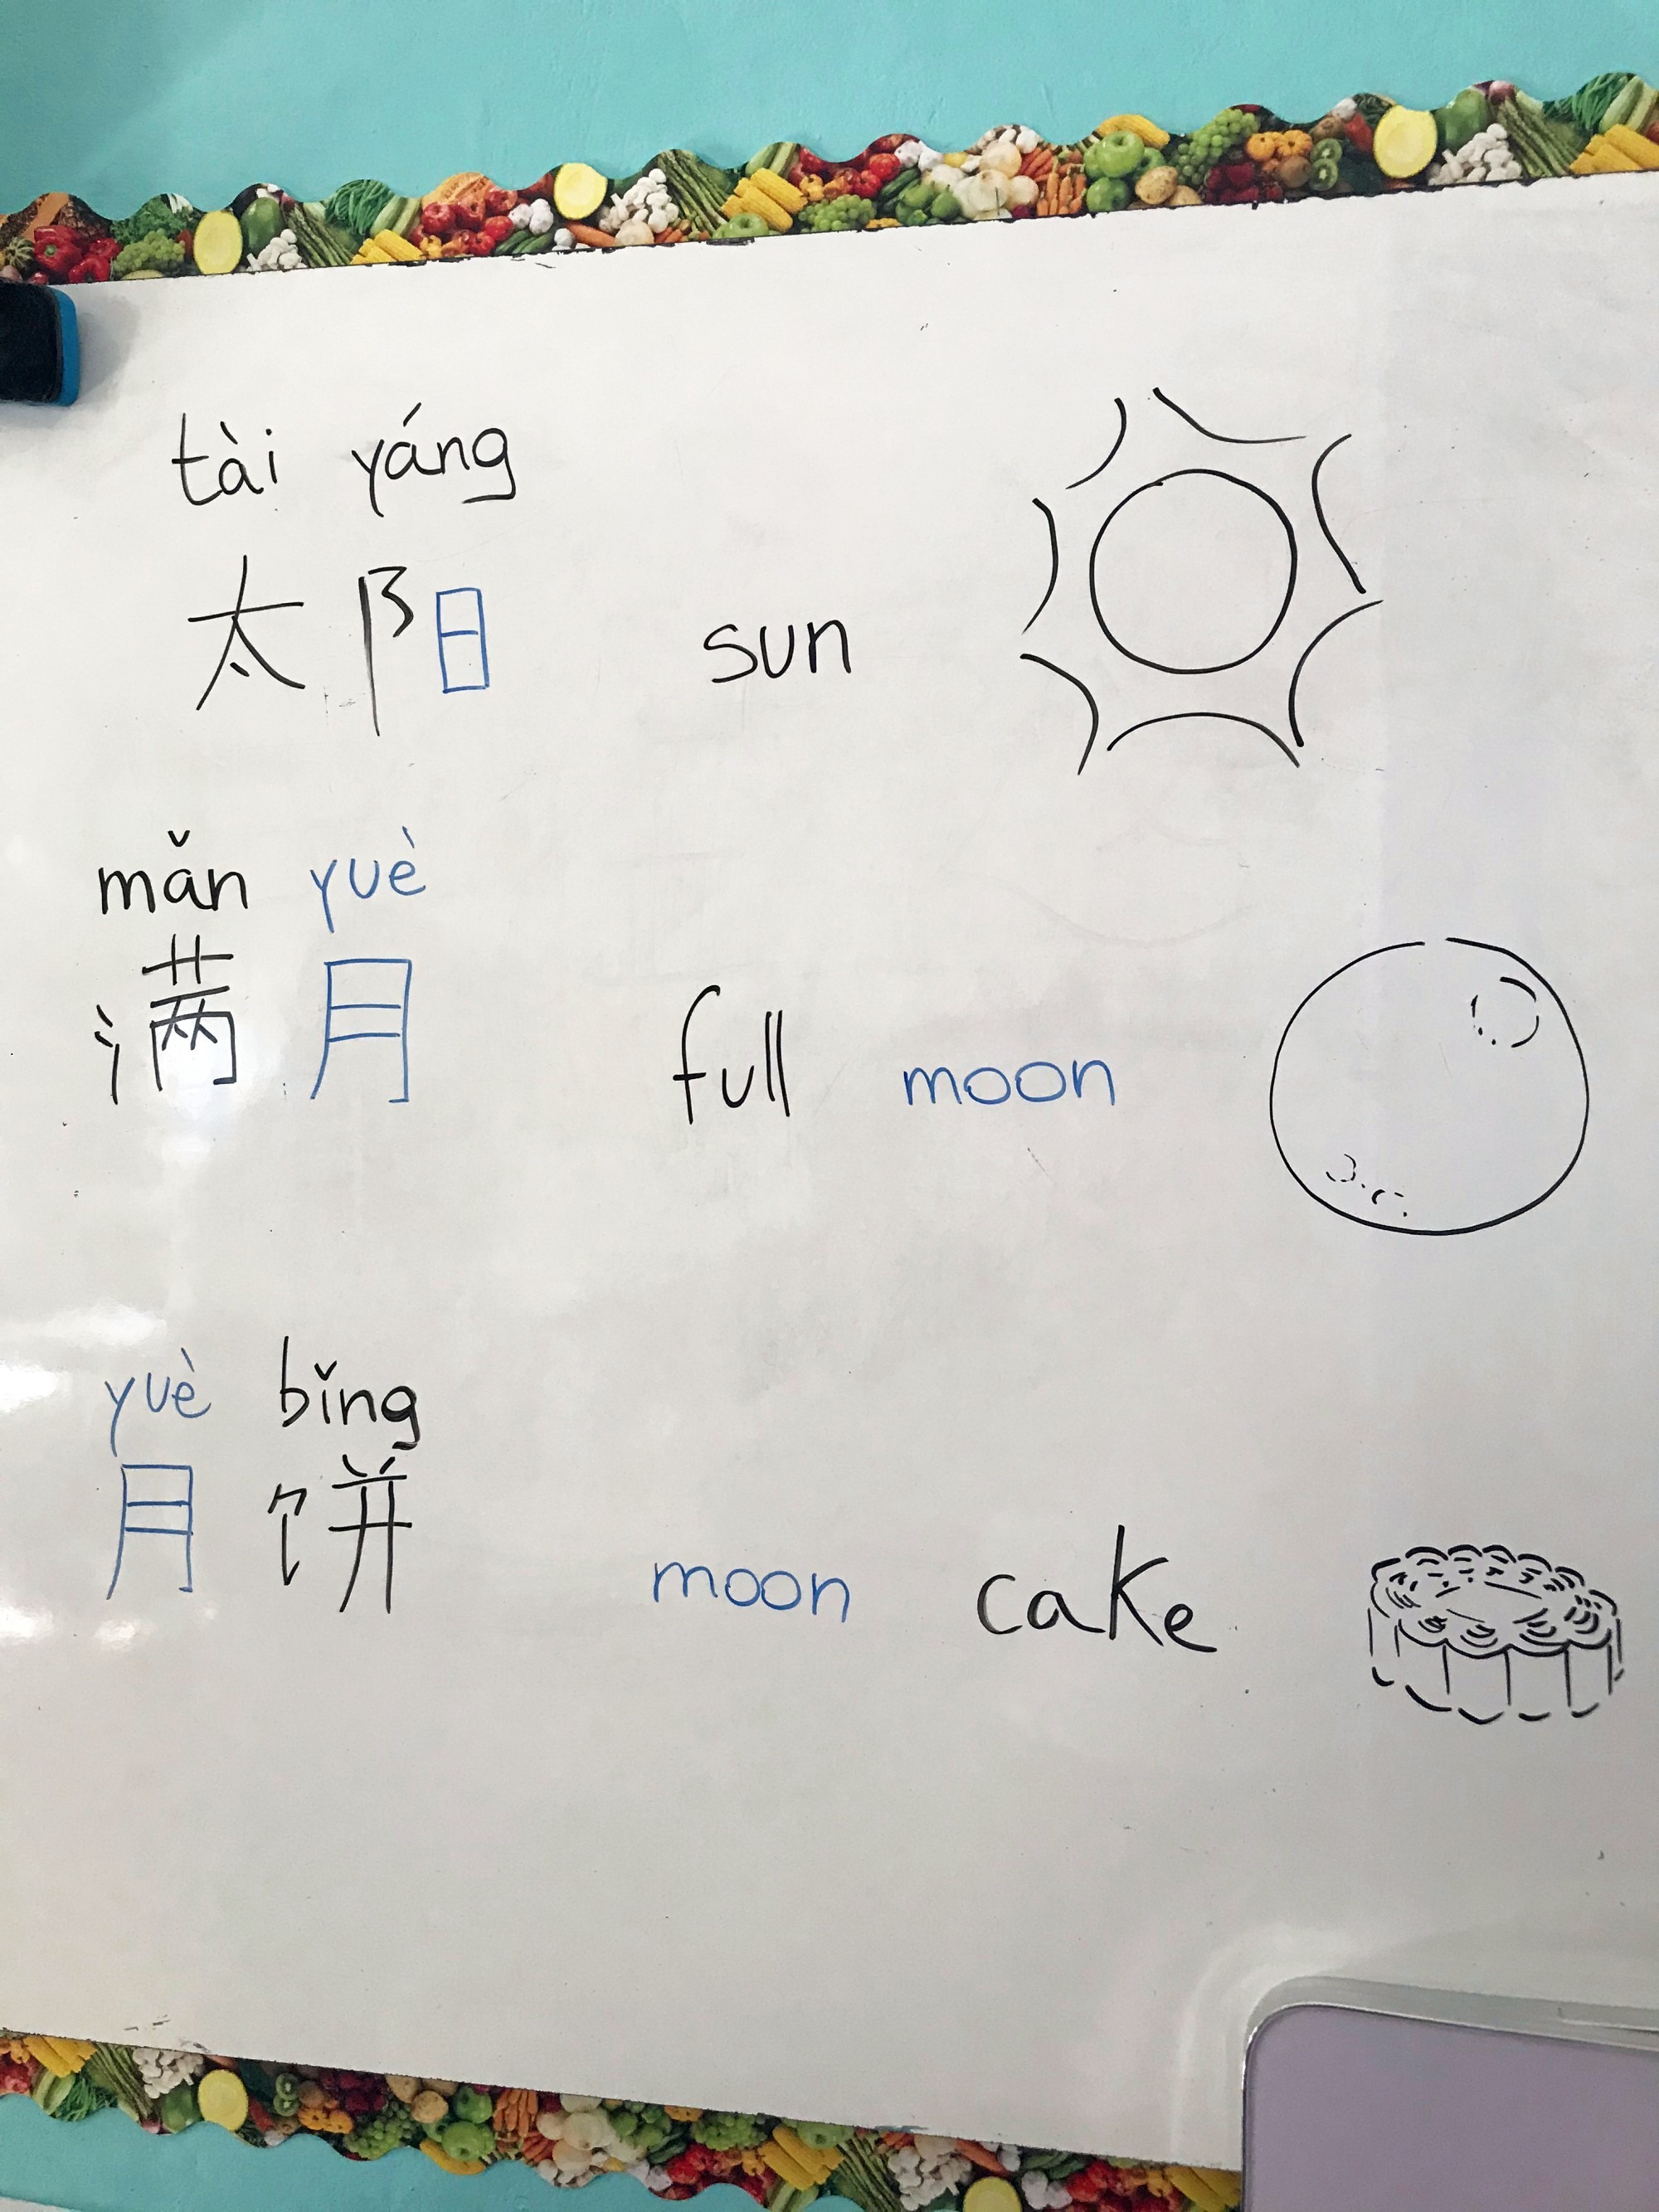 tài yáng
太阳 sun
mǎn yuè
满月 full moon
yuè bǐng
月饼 moon cake